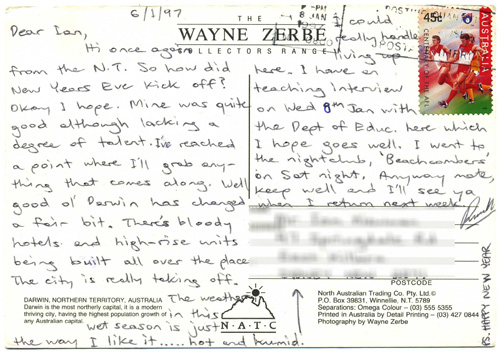 6/1/97
THE
WAYNE ZERBE
COLLECTORS RANGE
8 JAN
45c
AUSTRALIA
Dear Ian,
Hi once again
from the N.T. So how did
New Years Eve Kick off?
Okay I hope. Mine was quite
good although lacking a
degree of talent. I've reached
a point where I'll grab any-
thing that comes along. Well
good ol' Darwin has changed
a fair bit. There's bloody
hotels and high-rise units
being built all over the place
The city is really taking off.
The weather
in this
wet season is just
the way I like it..... hot and humid.
I could
really handle
living up
here. I have an
teaching interview
on Wed 8th Jan with
the Dept of Educ. here which
I hope goes well. I went to
the nightclub, 'Beachcombers'
on Sat night. Anyway mate,
keep well and I'll see ya
when I return next week.
PS. HAPPY NEW YEAR
POSTCODE
DARWIN, NORTHERN TERRITORY, AUSTRALIA
Darwin is the most northerly capital, it is a modern
thriving city, having the highest population growth of
any Australian capital.
N·A·T·C
North Australian Trading Co. Pty. Ltd. ©
P.O. Box 39631, Winnellie, N.T. 5789
Separations: Omega Colour – (03) 555 5355
Printed in Australia by Detail Printing – (03) 427 0844
Photography by Wayne Zerbe